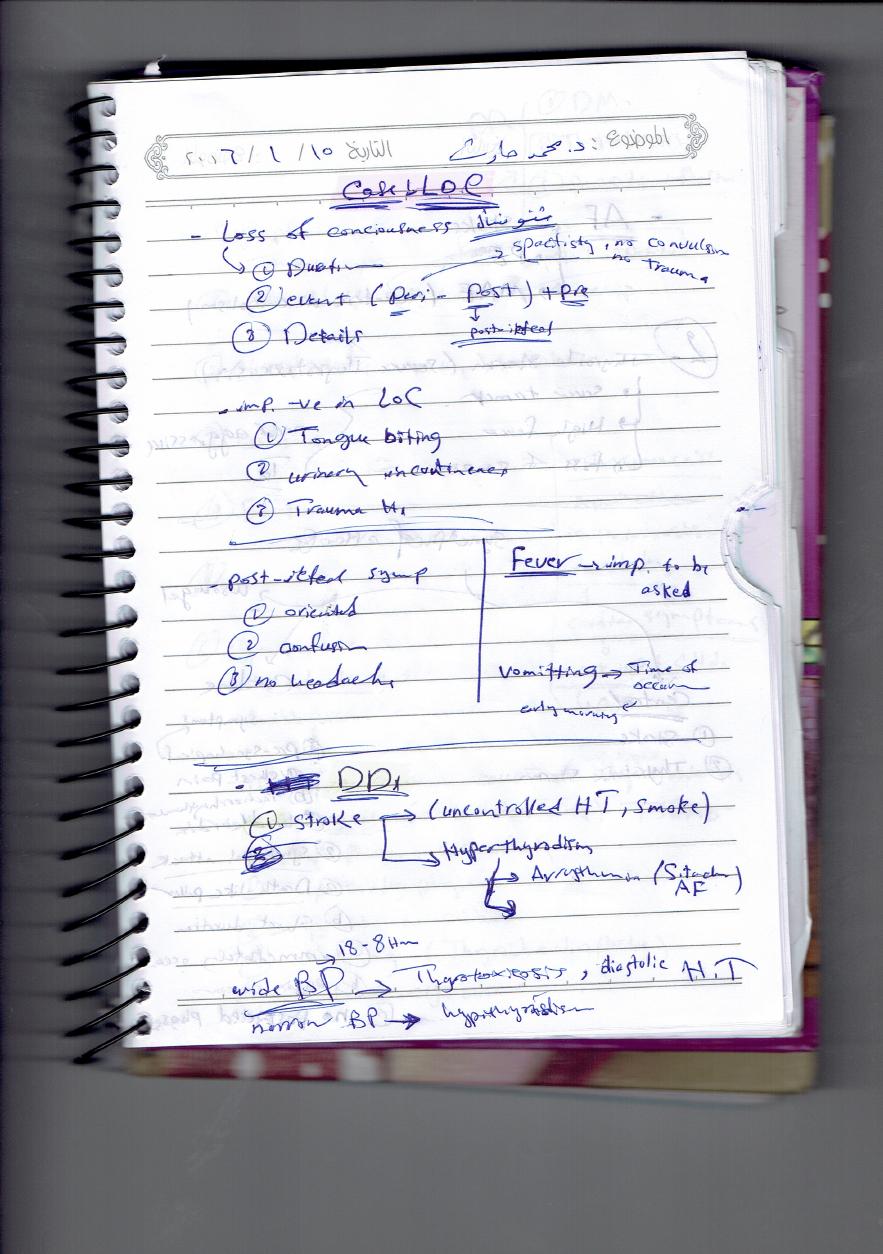 الموضوع: د. محمد حارث التاريخ ١٥ / ١ / ٢٠١٦
Case 1 LOC
- Loss of conciousness
① Duration
→ spacticity, no convulsion
no trauma
② event (peri - post) + pre
③ Details
post-icteal
- imp. -ve in LoC
① Tongue biting
② urinary incontinence
③ Trauma Hx
- post-icteal symp
① oriented
② confusion
③ no headache
Fever → imp. to be
asked
vomitting → Time of
occur
early morning
- DDx
① Stroke → (uncontrolled HT, smoke)
→ Hyperthyrodism
→ Arrythmia (S.tach
AF)
18-8 Hm
wide BP → Thyrotoxicosis, diastolic H.T
narrow BP → hypothyrodism